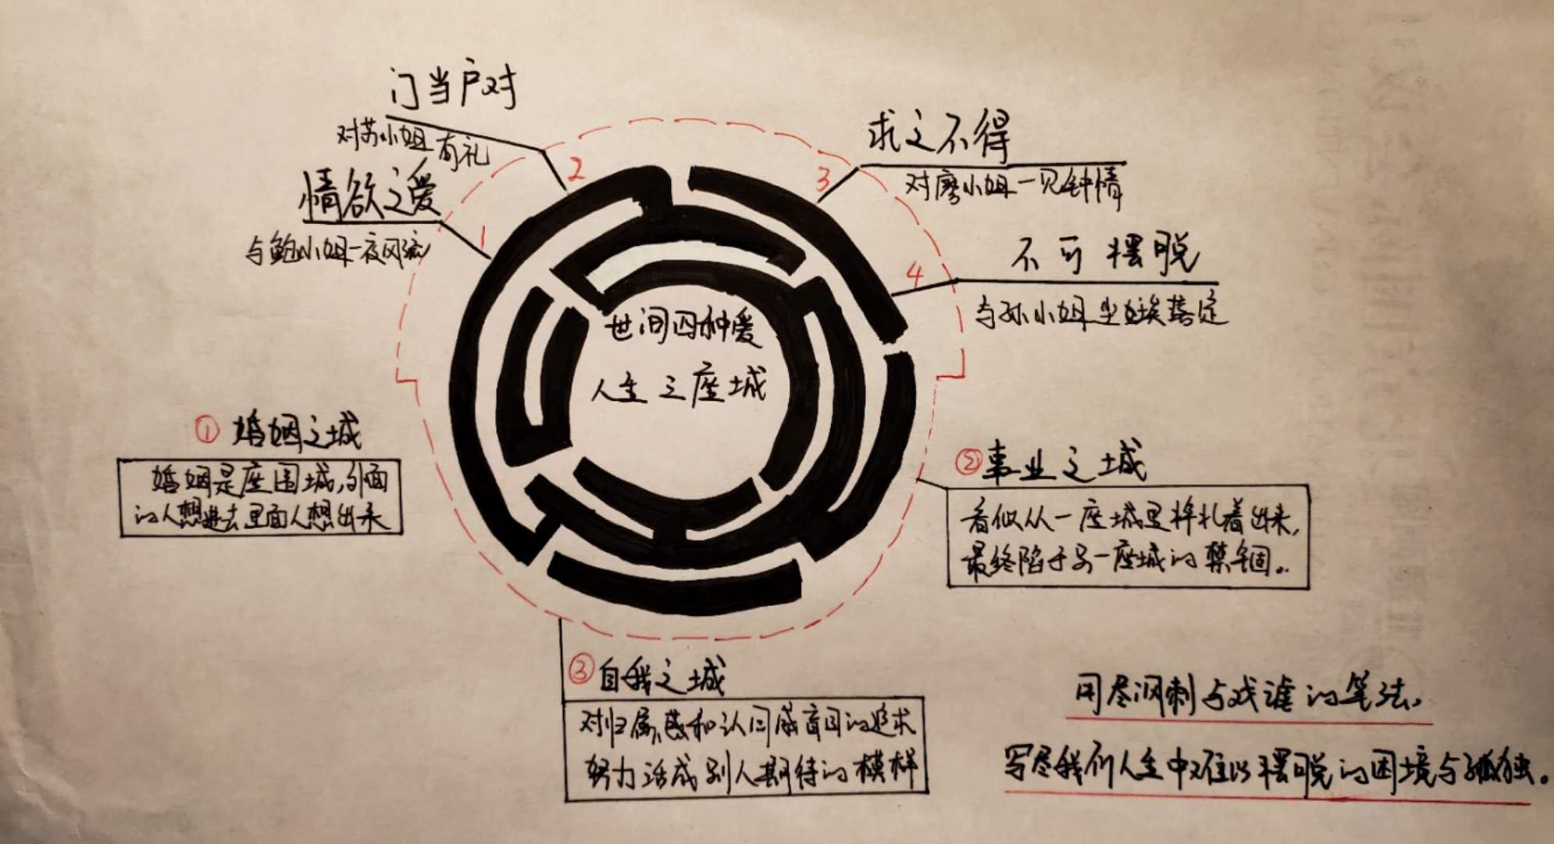 门当户对
对苏小姐有礼
2
情欲之爱
与鲍小姐一夜风流
1
求之不得
对廖小姐一见钟情
3
不可摆脱
与孙小姐尘埃落定
4
世间四种爱
人生三座城
① 婚姻之城
婚姻是座围城,外面
的人想进去里面人想出来
② 事业之城
看似从一座城里挣扎着出来,
最终陷于另一座城的禁锢。
③ 自我之城
对归属感和认同感盲目的追求
努力活成别人期待的模样
用尽讽刺与戏谑的笔法,
写尽我们人生中难以摆脱的困境与孤独。